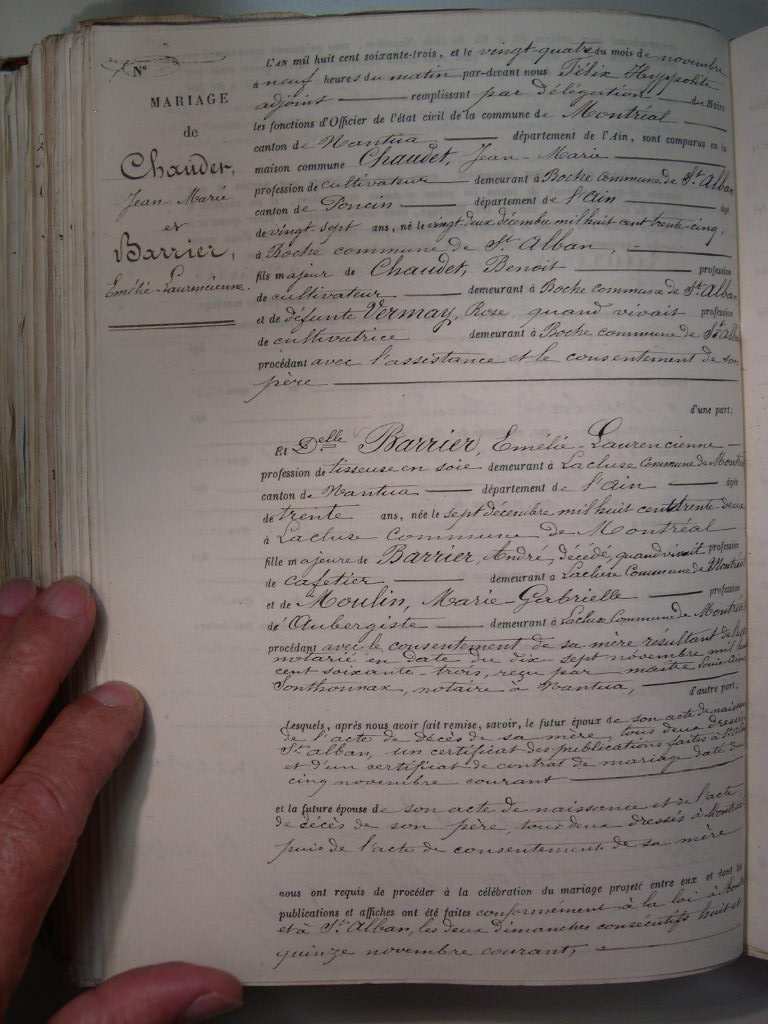 N°
MARIAGE
de
Chaudet,
Jean-Marie
et
Barrier,
Emélie-Laurencienne.
L'AN mil huit cent soixante-trois, et le vingt-quatre du mois de novembre
à neuf heures du matin par-devant nous Félix Hyppolite
adjoint remplissant par délégation du Maire
les fonctions d'Officier de l'état civil de la commune de Montréal
canton de Nantua département de l'Ain, sont comparus en la
maison commune Chaudet, Jean-Marie
profession de cultivateur demeurant à Boche commune de St Alban
canton de Poncin département de l'Ain âgé
de vingt sept ans, né le vingt deux décembre mil huit cent trente-cinq,
à Boche commune de St Alban,
fils majeur de Chaudet, Benoit profession
de cultivateur demeurant à Boche commune de St Alban
et de défunte Vermay, Rose quand vivait profession
de cultivatrice demeurant à Boche commune de St Alban
procédant avec l'assistance et le consentement de son
père
d'une part;
Et Delle Barrier, Emélie-Laurencienne
profession de tisseuse en soie demeurant à Lacluse Commune de Montré
canton de Nantua département de l'Ain âgée
de trente ans, née le sept décembre mil huit cent trente deux
à Lacluse commune de Montréal
fille majeure de Barrier, André, décédé, quand vivait profession
de cafetier demeurant à Lacluse Commune de Montréal
et de Moulin, Marie-Gabrielle profession
de d'Aubergiste demeurant à Lacluse Commune de Montréal
procédant avec le consentement de sa mère résultant de l'acte
notarié en date du dix-sept novembre mil huit
cent soixante-trois, reçu par maître Louis
Sonthonnax, notaire à Nantua, d'autre part.
Lesquels, après nous avoir fait remise, savoir, le futur époux de son acte de naissance
de l'acte de décès de sa mère, tous deux dressés
St alban, un certificat des publications faites à St Alban
et d'un certificat de contrat de mariage daté du
cinq novembre courant
et la future épouse de son acte de naissance et de l'acte
de décès de son père, tous deux dressés à Montréal
puis de l'acte de consentement de sa mère
nous ont requis de procéder à la célébration du mariage projeté entre eux et dont les
publications et affiches ont été faites conformément à la loi à Montréal
et à St Alban, les deux dimanches consécutifs huit et
quinze novembre courant,